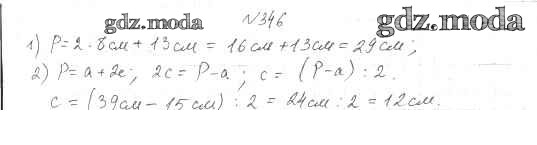 gdz.moda №346 gdz.moda
1) P = 2 · 8см + 13см = 16см + 13см = 29см;
2) P = a + 2c; 2c = P - a; c = (P - a) : 2.
c = (39см - 15см) : 2 = 24см : 2 = 12см.